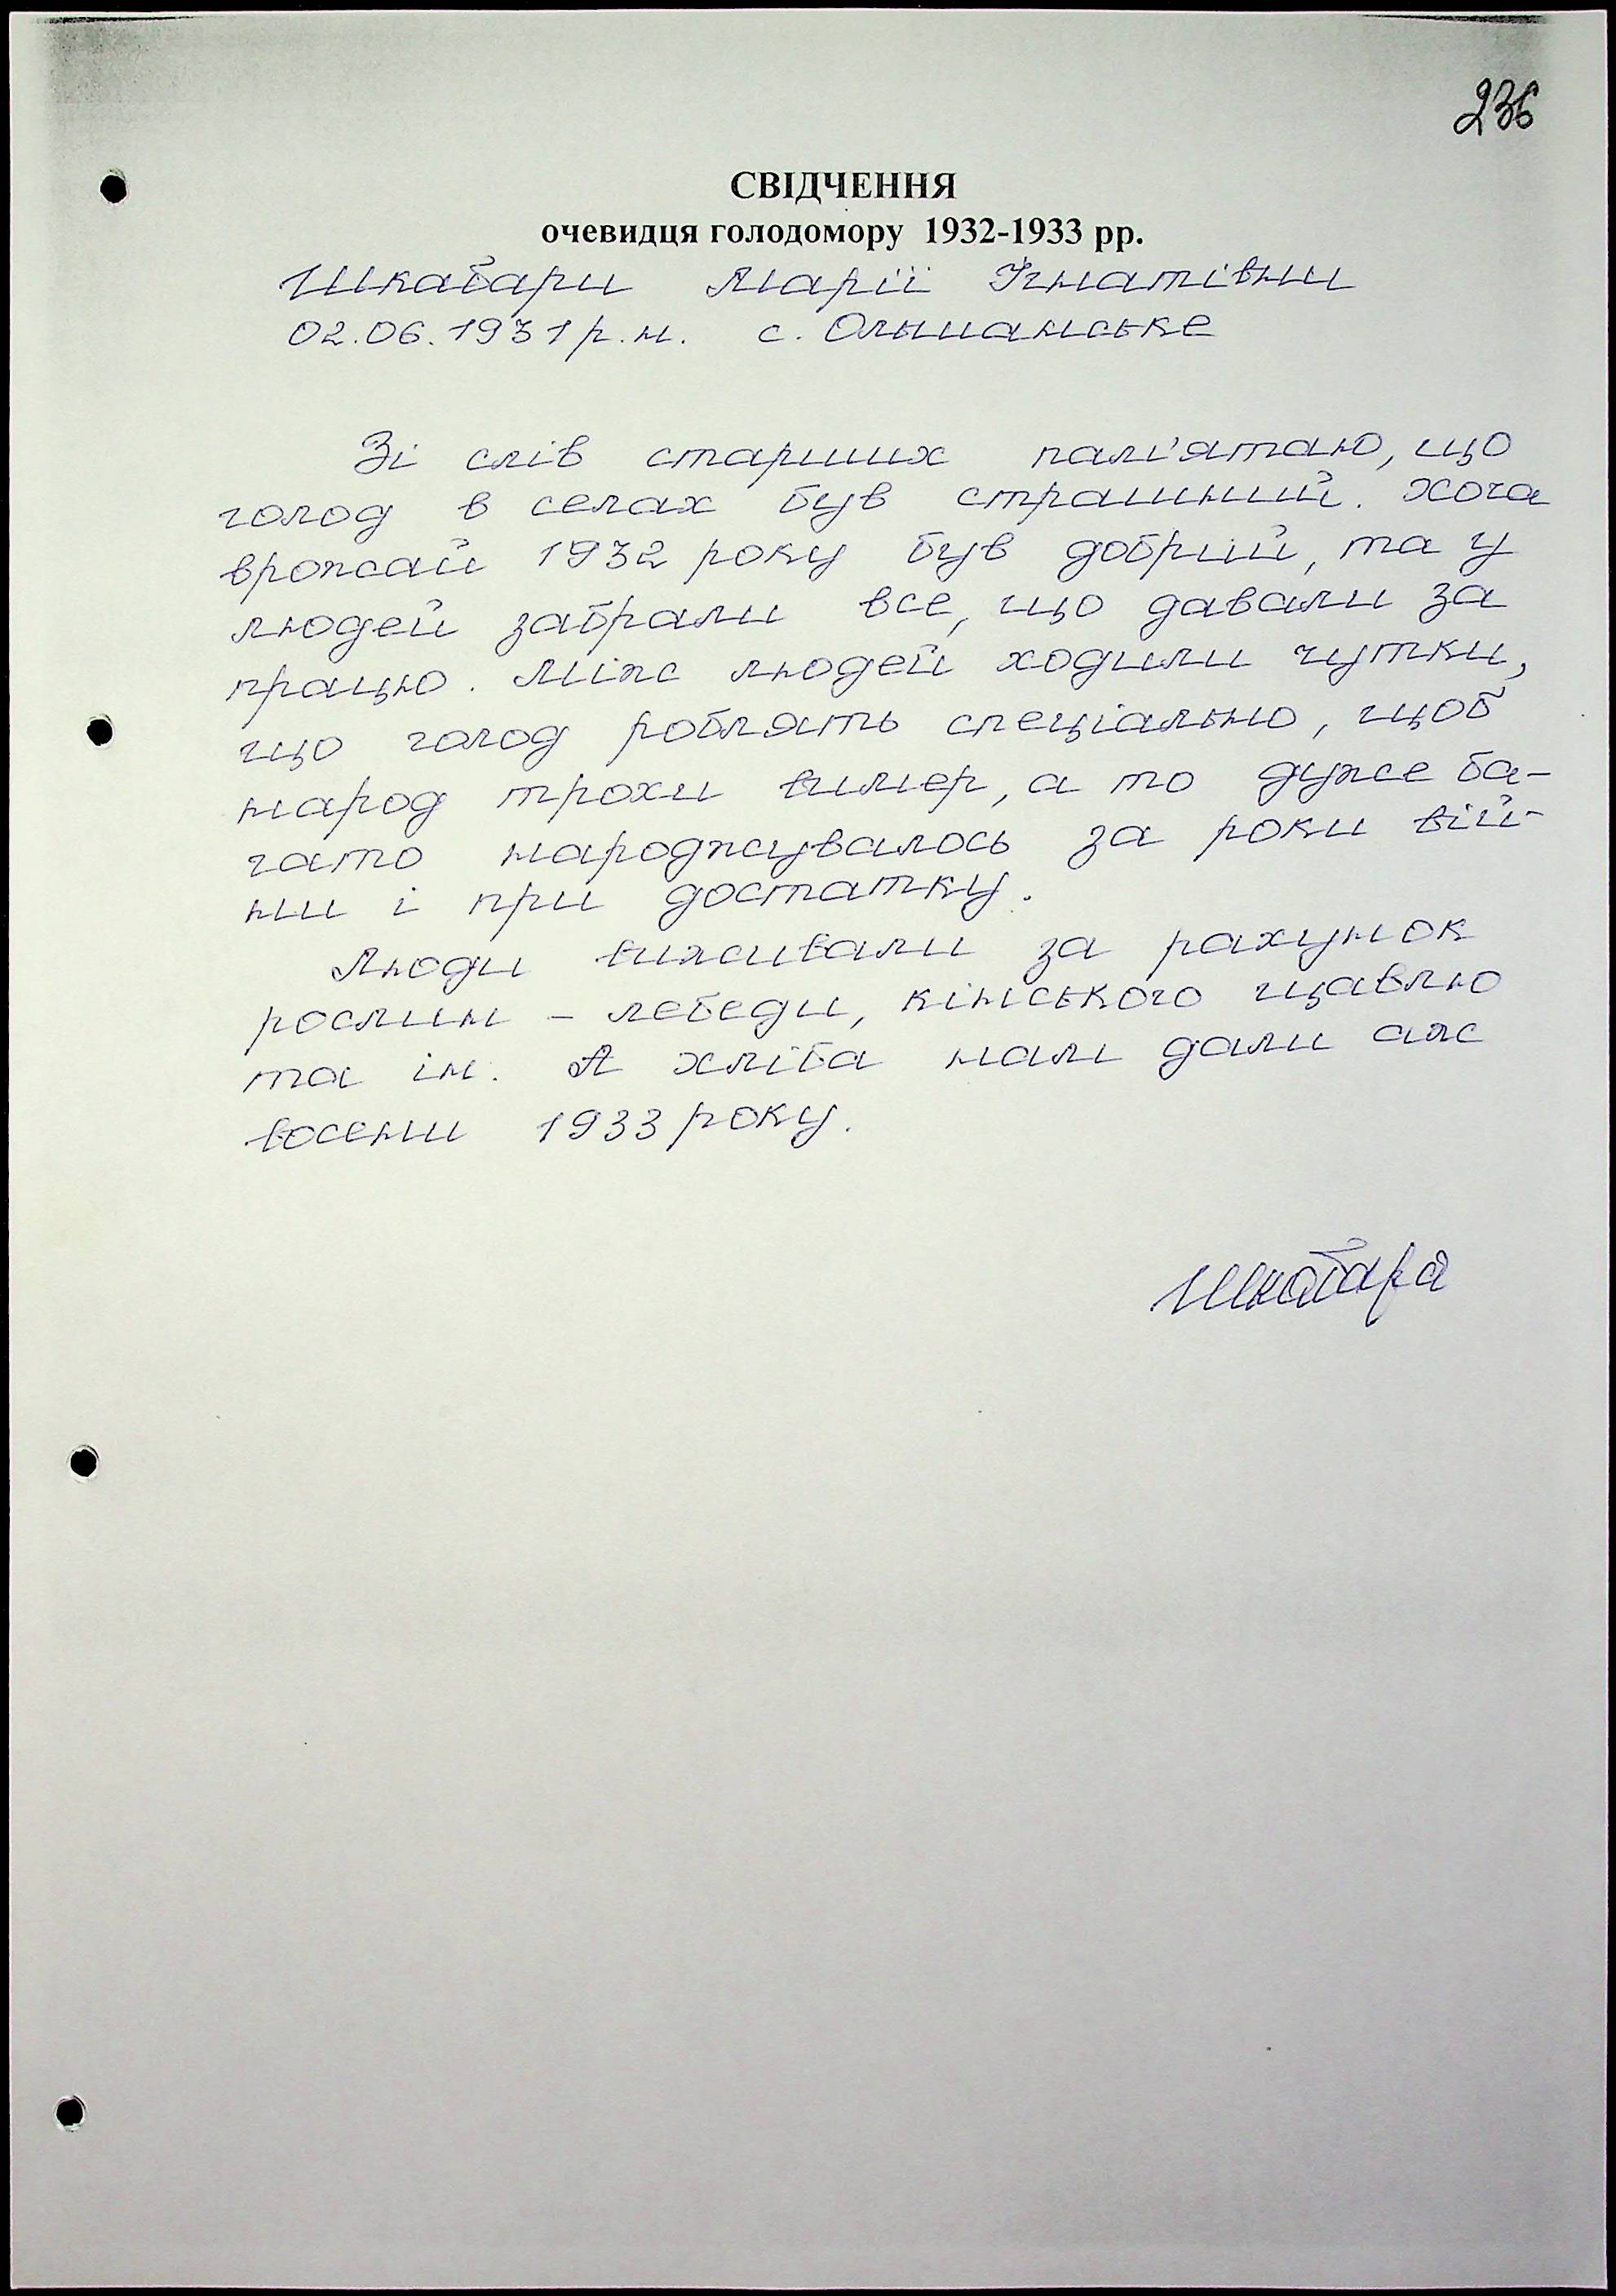 236
СВІДЧЕННЯ
очевидця голодомору 1932-1933 рр.
Шкабари Марії Ігнатівни
02.06.1931 р.н. с. Ольшанське
Зі слів старших пам'ятаю, що
голод в селах був страшний. Хоча
врожай 1932 року був добрий, та у
людей забрали все, що давали за
працю. Між людей ходили чутки,
що голод роблять спеціально, щоб
народ трохи вимер, а то дуже ба-
гато народжувалось за роки вій-
ни і при достатку.
Люди виживали за рахунок
рослин – лебеди, кінського щавлю
та ін. А хліба нам дали аж
восени 1933 року.
Шкабара